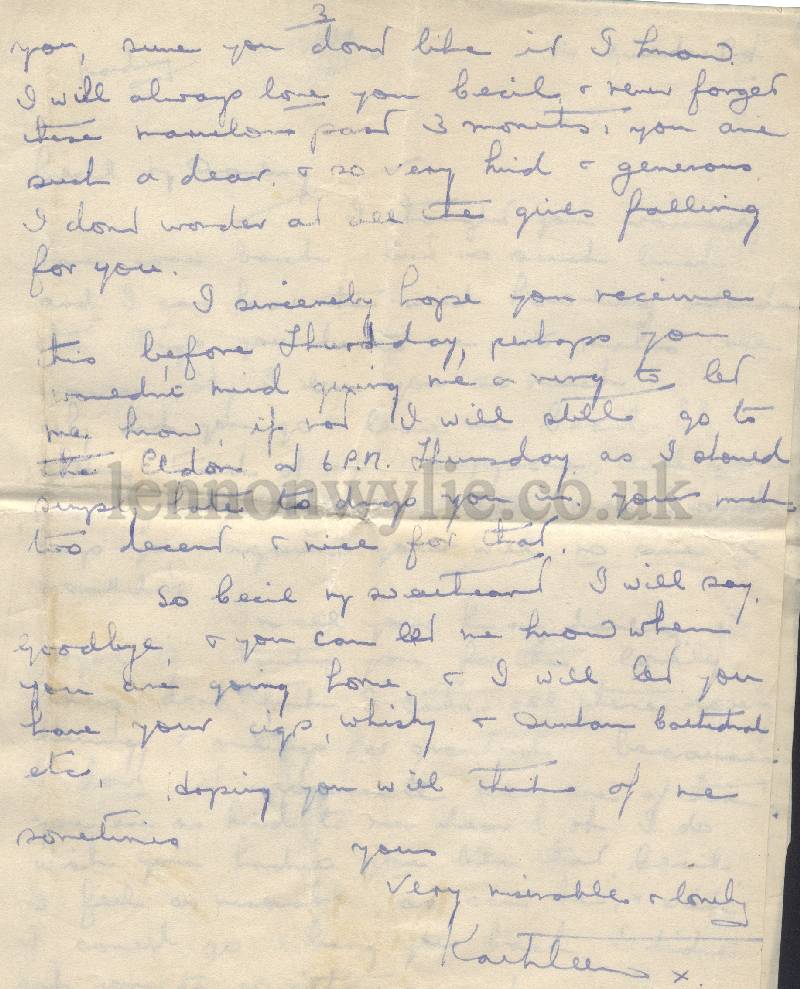 3
you, sure you dont like it I know.
I will always love you Cecil, & never forget
these marvelous past 3 months, you are
such a dear & so very kind & generous
I dont wonder at all the girls falling
for you.
I sincerely hope you receive
this before Thursday, perhaps you
wouldn't mind giving me a ring to let
me know, if not I will still go to
the Eldon at 6 P.M. Thursday as I should
simply hate to drop you in. your much
too decent & nice for that.
So Cecil my sweetheart I will say
goodbye, & you can let me know when
you are going home, & I will let you
have your cigs, whisky & Cathedral
etc. hoping you will think of me
sometimes
yours
very miserable & lonely
Kathleen x.
lennonwylie.co.uk